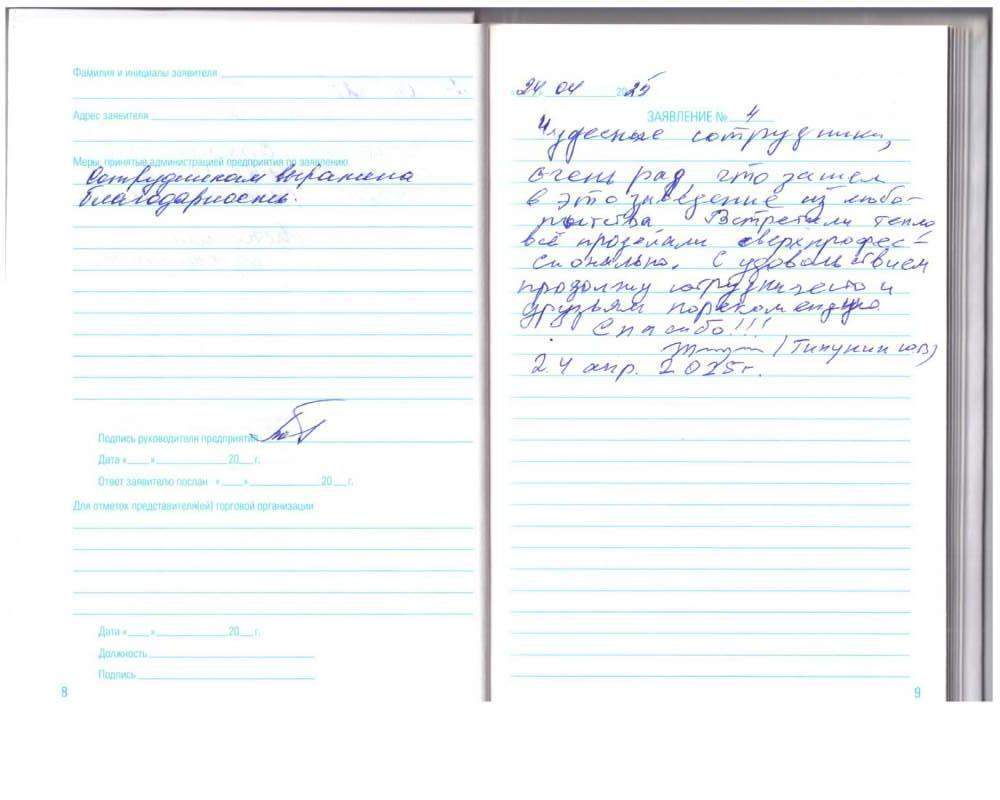 Фамилия и инициалы заявителя
Адрес заявителя
Меры, принятые администрацией предприятия по заявлению
Сотрудникам выражена
благодарность.
Подпись руководителя предприятия
Дата «___»__________20__г.
Ответ заявителю послан «___»__________20__г.
Для отметок представителя(ей) торговой организации
Дата «___»__________20__г.
Должность
Подпись
8
24 04 2025
ЗАЯВЛЕНИЕ № 4
Чудесные сотрудники,
очень рад, что зашел
в это заведение из любо-
пытства Встретили тепло
всё проделали сверхпрофес-
сионально. С удовольствием
продолжу сотрудничество и
друзьям порекомендую
Спасибо!!!
/(Типунин ЮВ)
24 апр. 2025г.
9